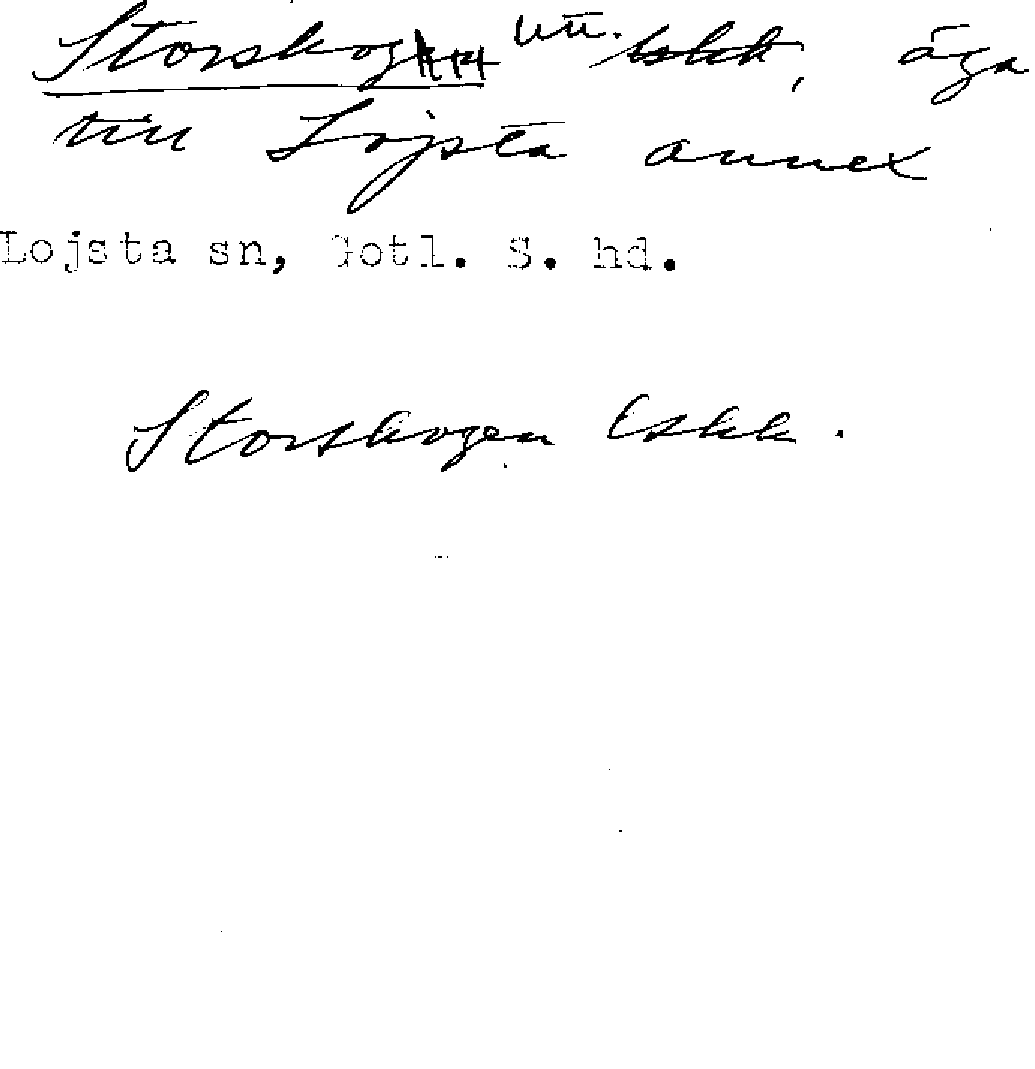 Storskog utt. , äga
till Lojsta annex
Lojsta sn, Gotl. S. hd.
Storskogen